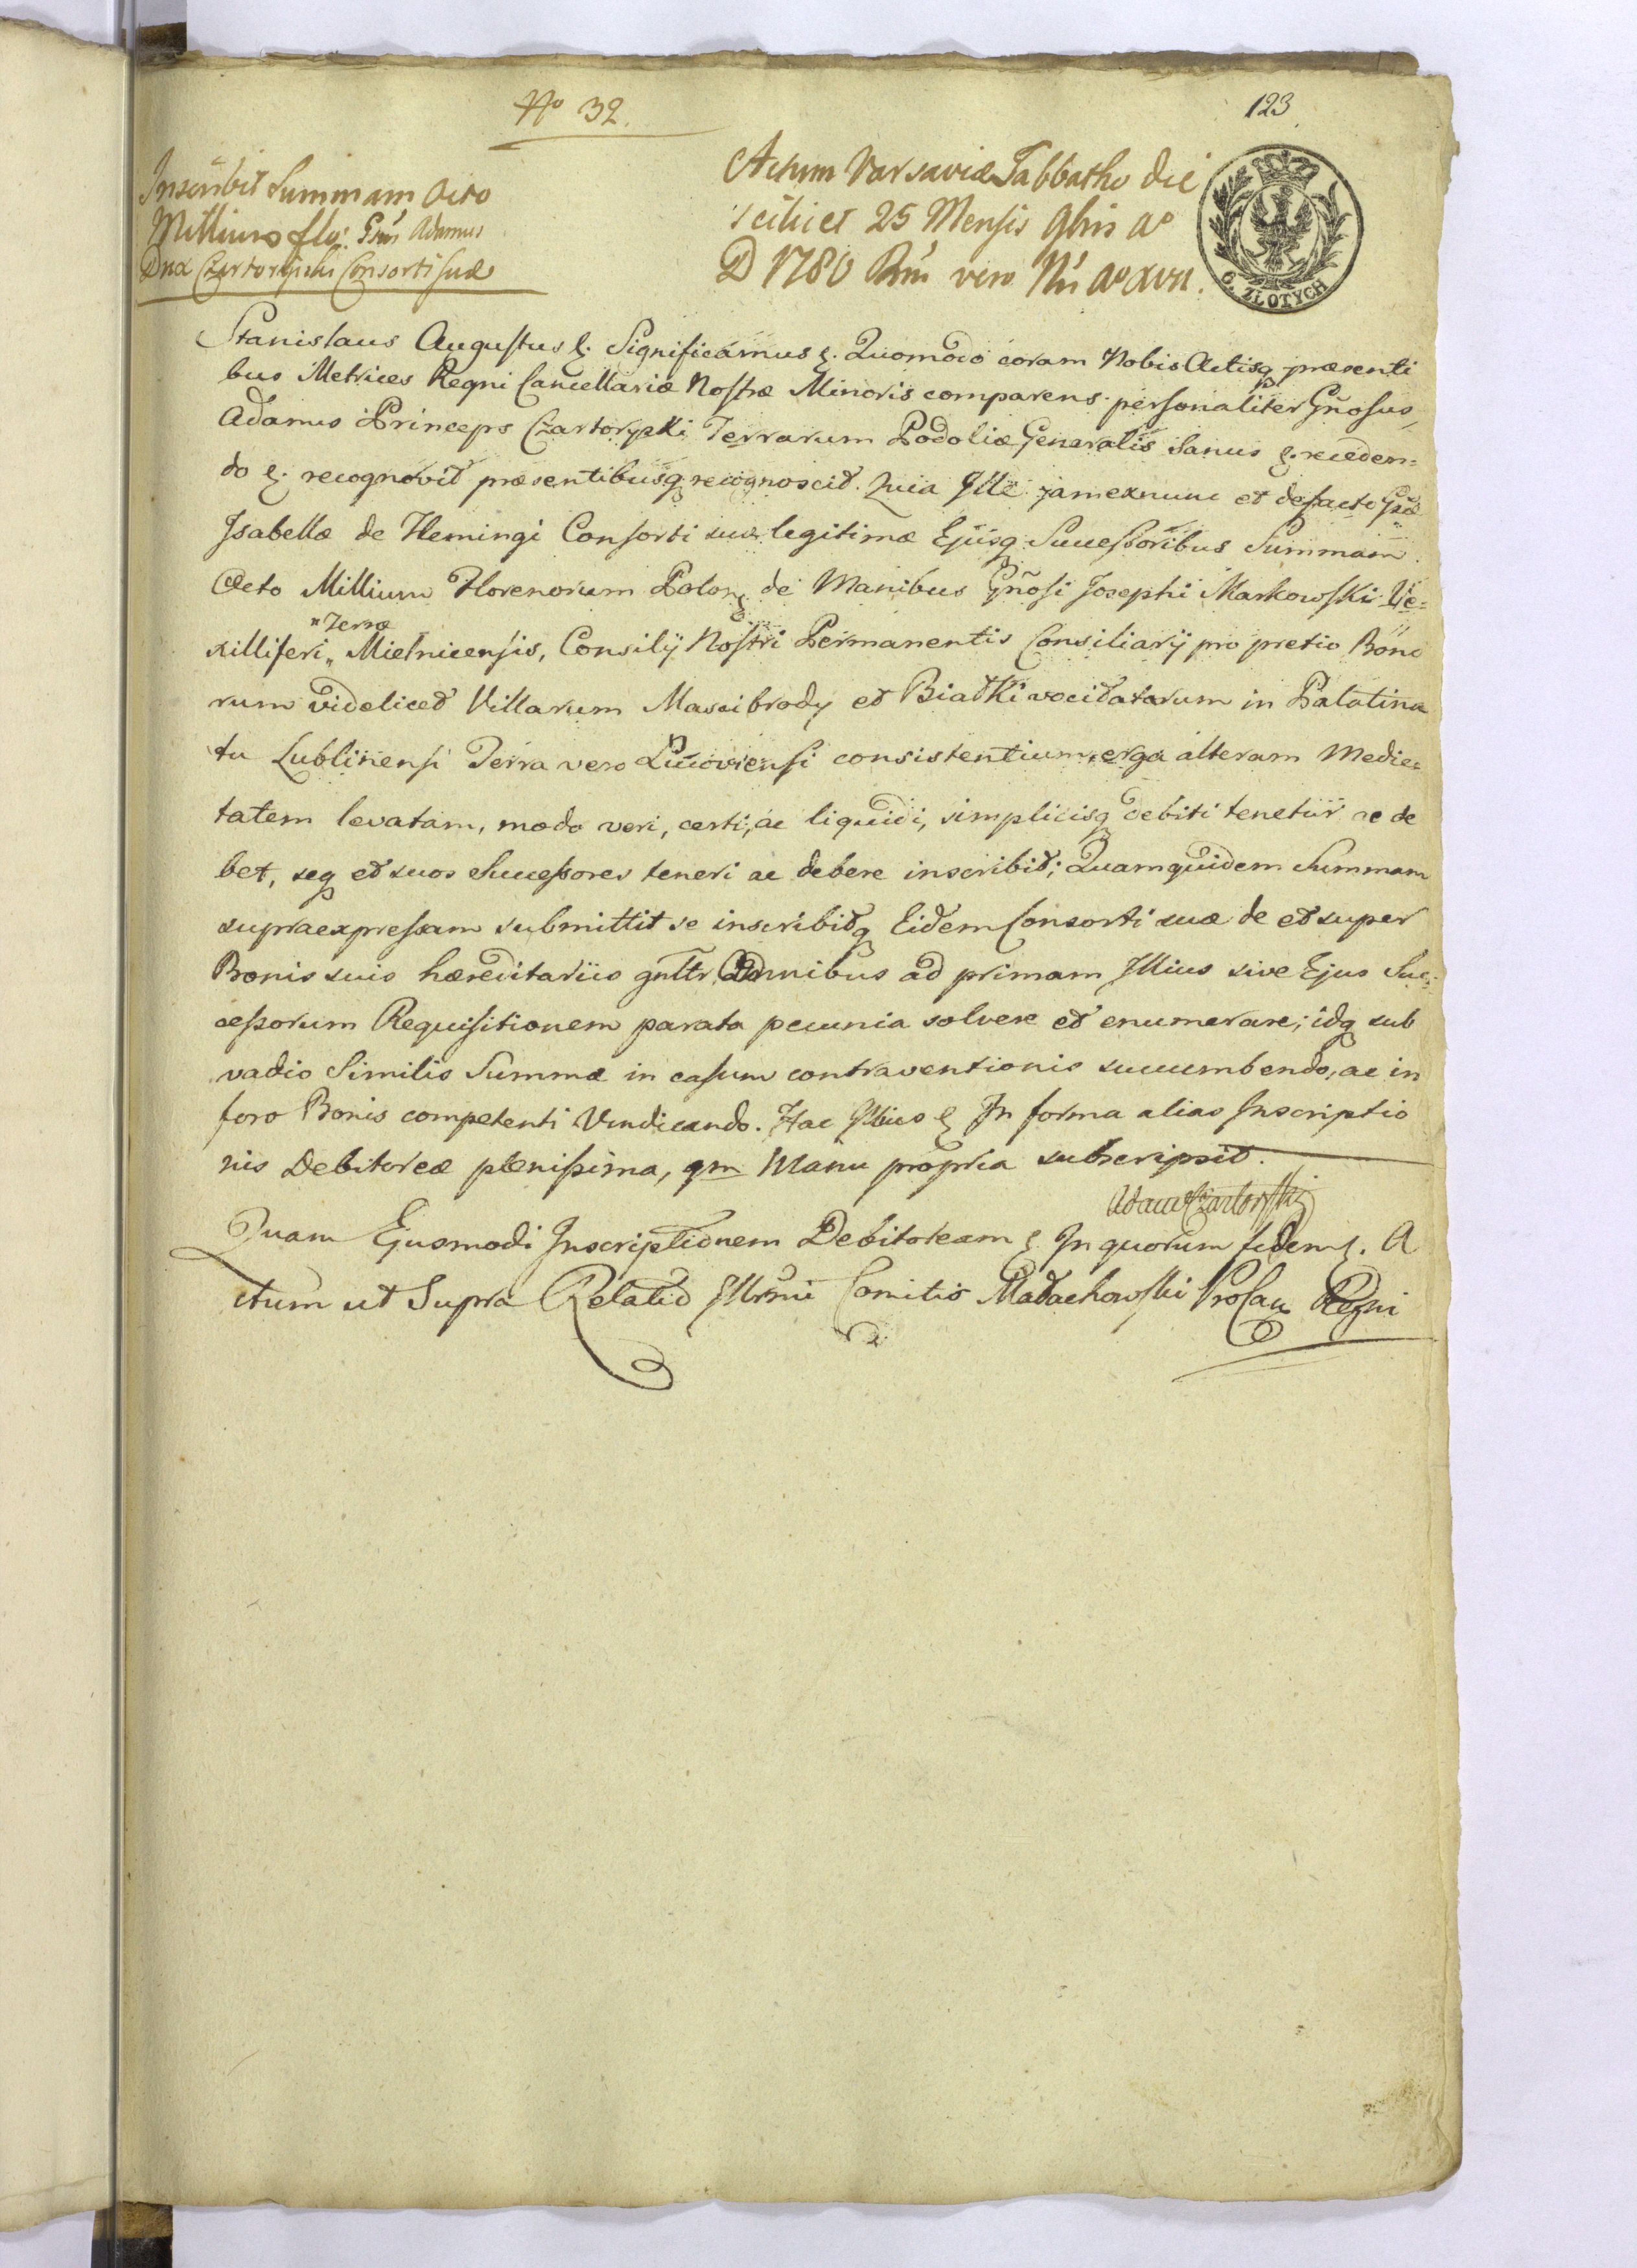 No 32.
123
Inscribit Summam Octo
Millium flo: Gñús Adamus
Dux Czartoryski Consorti suæ
Actum Varsaviæ Sabbatho die
scilicet 25 Mensis 9bris Ao
D 1780 Rñi vero Ñri Ao XVII.
6. ZŁOTYCH
Stanislaus Augustus &. Significamus &. Quomodo coram Nobis Actisq præsenti
bus Metrices Regni Cancellariæ Nostræ Minoris comparens personaliter Gñosus,
Adamus Princeps Czartoryski Terrarum Podoliæ Generalis Sanus &. receden=
do &. recognovit præsentibusq recognoscit. Quia Ille jamexnunc et defacto Gsæ
Isabellæ de Flemingi Consorti suæ legitimæ Ejusq Successoribus Summam
Octo Millium Florenorum Polon, de Manibus Gñosi Josephi Markowski Ve=
"Terræ
xilliferi " Mielnicensis, Consilij Nostri Permanentis Consiliarij pro pretio Bono
rum videlicet Villarum Mascibrody et Biatki vocitatarum in Palatina
tu Lublinensi Terra vero Lucoviensi consistentium, erga alteram Medie=
tatem levatam, modo veri, certi, ac liquidi, simplicisq debiti tenetur ac de
bet, seq et suos Successores teneri ac debere inscribit; Quamquidem Summam
supraexpressam submittit se inscribitq Eidem Consorti suæ de et super
Bonis suis hæreditariis gnltr Omnibus ad primam Illius sive Ejus Suc=
cessorum Requisitionem parata pecunia solvere et enumerare; idq sub
vadio Similis Summæ in casum contraventionis succumbendo, ac in
foro Bonis competenti Vindicando. Hac Illius & In forma alias Inscriptio
nis Debitoreæ plenissima, qm Manu propria subscripsit.
Adam Czartoryski
Quam Ejusmodi Inscriptionem Debitoream & In quorum fidem &. A
ctum ut Supra Relatio Illrmi Comitis Małachowski ProCan Regni